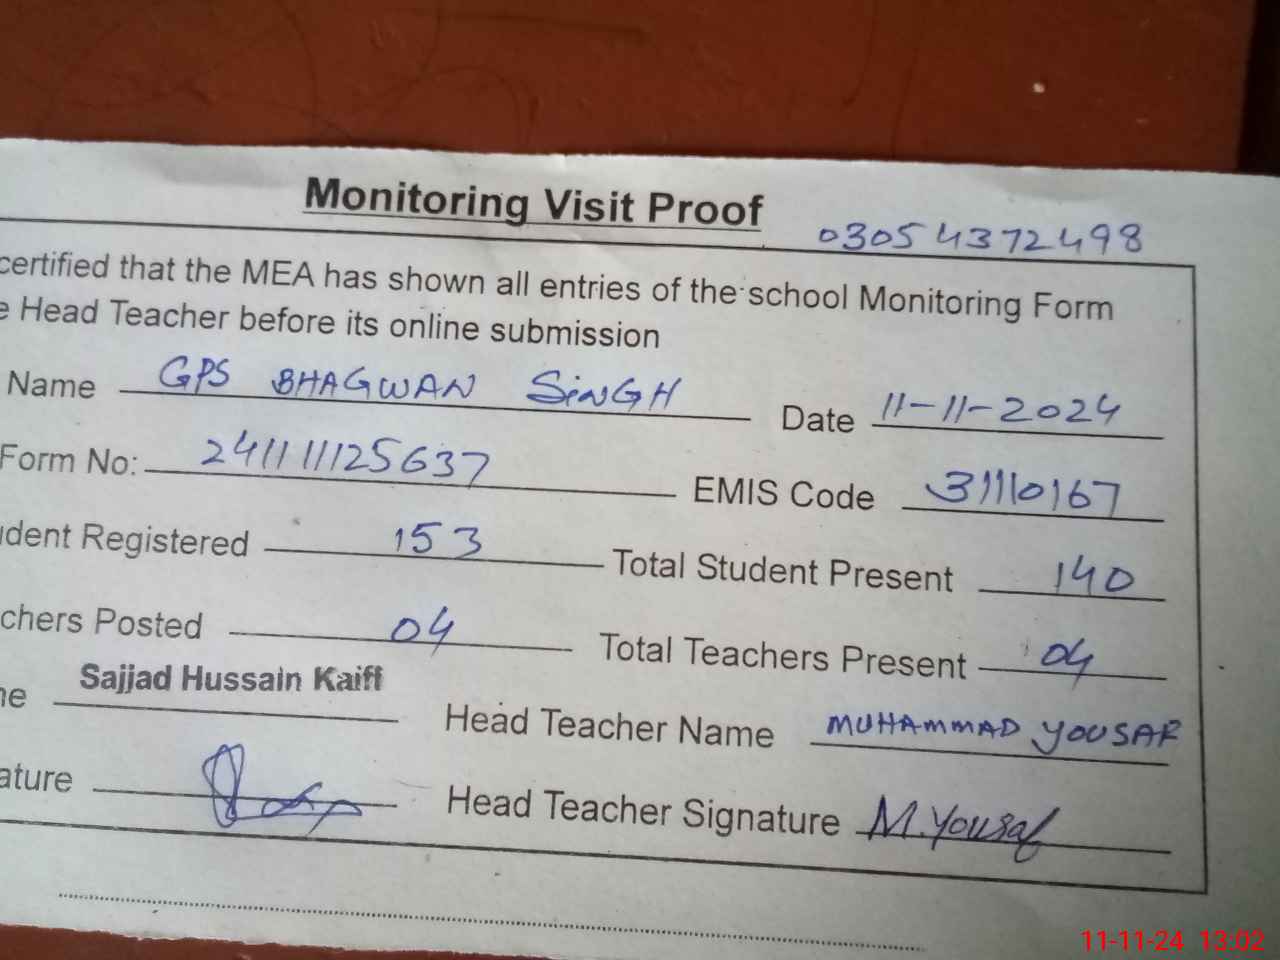 Monitoring Visit Proof
03054372498
certified that the MEA has shown all entries of the school Monitoring Form
e Head Teacher before its online submission
Name GPS BHAGWAN SiNGH Date 11-11-2024
Form No: 241111125637 EMIS Code 31110167
dent Registered 153 Total Student Present 140
chers Posted 04 Total Teachers Present 04
ne Sajjad Hussain Kaiff Head Teacher Name MUHAMMAD YOUSAF
ature Head Teacher Signature M.Yousaf
11-11-24 13:02